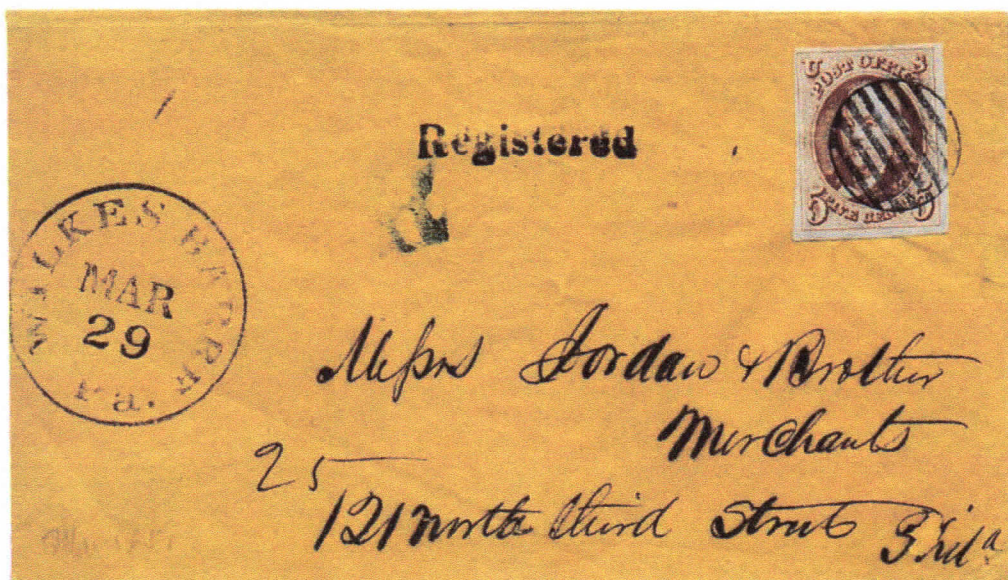 U S
POST OFFICE
FIVE CENTS
5 5
Registered
R
WILKES BARRE
MAR
29
Pa.
Messrs Jordan & Brother
Merchants
25
121 North third Street Phila